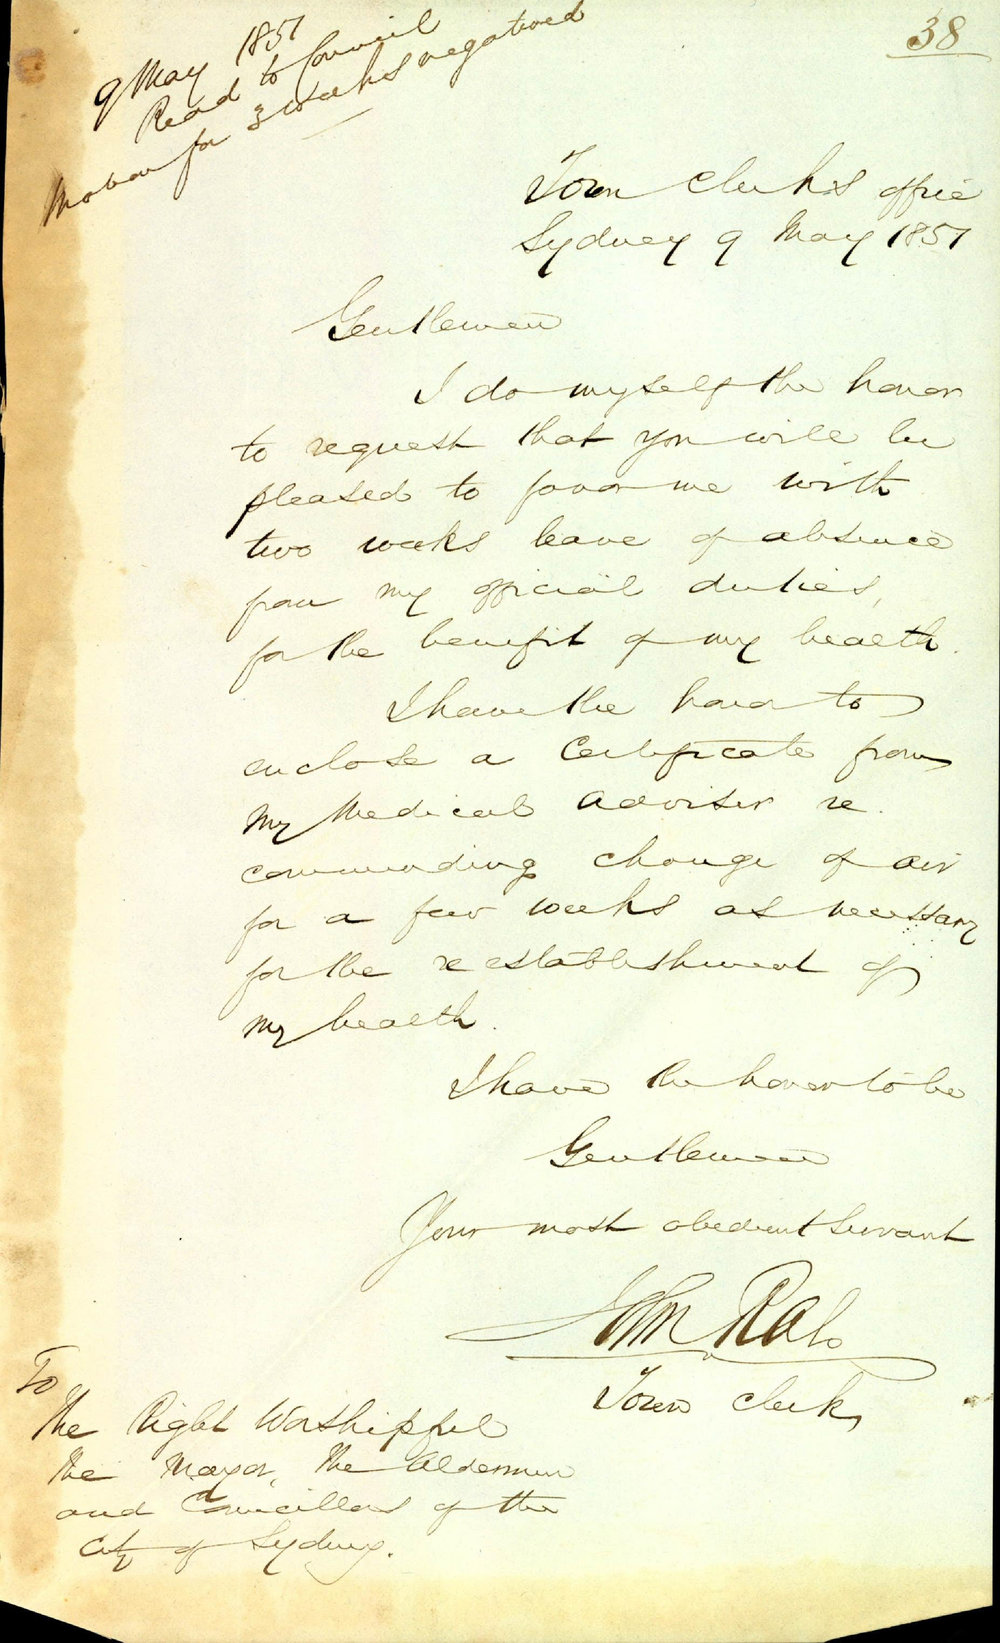 38
9 May 1851
Read to Council
Motion for 3 weeks negatived
Town Clerks Office
Sydney 9 May 1851
Gentlemen
I do myself the honor
to request that you will be
pleased to favor me with
two weeks leave of absence
from my official duties,
for the benefit of my health.
I have the honor to
enclose a Certificate from
my Medical Adviser re
commending change of air
for a few weeks as necessary
for the reestablishment of
my health.
I have the honor to be
Gentlemen
Your most obedient Servant
John Rae
Town Clerk
To
The Right Worshipful
the Mayor, the Aldermen
and Councillors of the
City of Sydney.